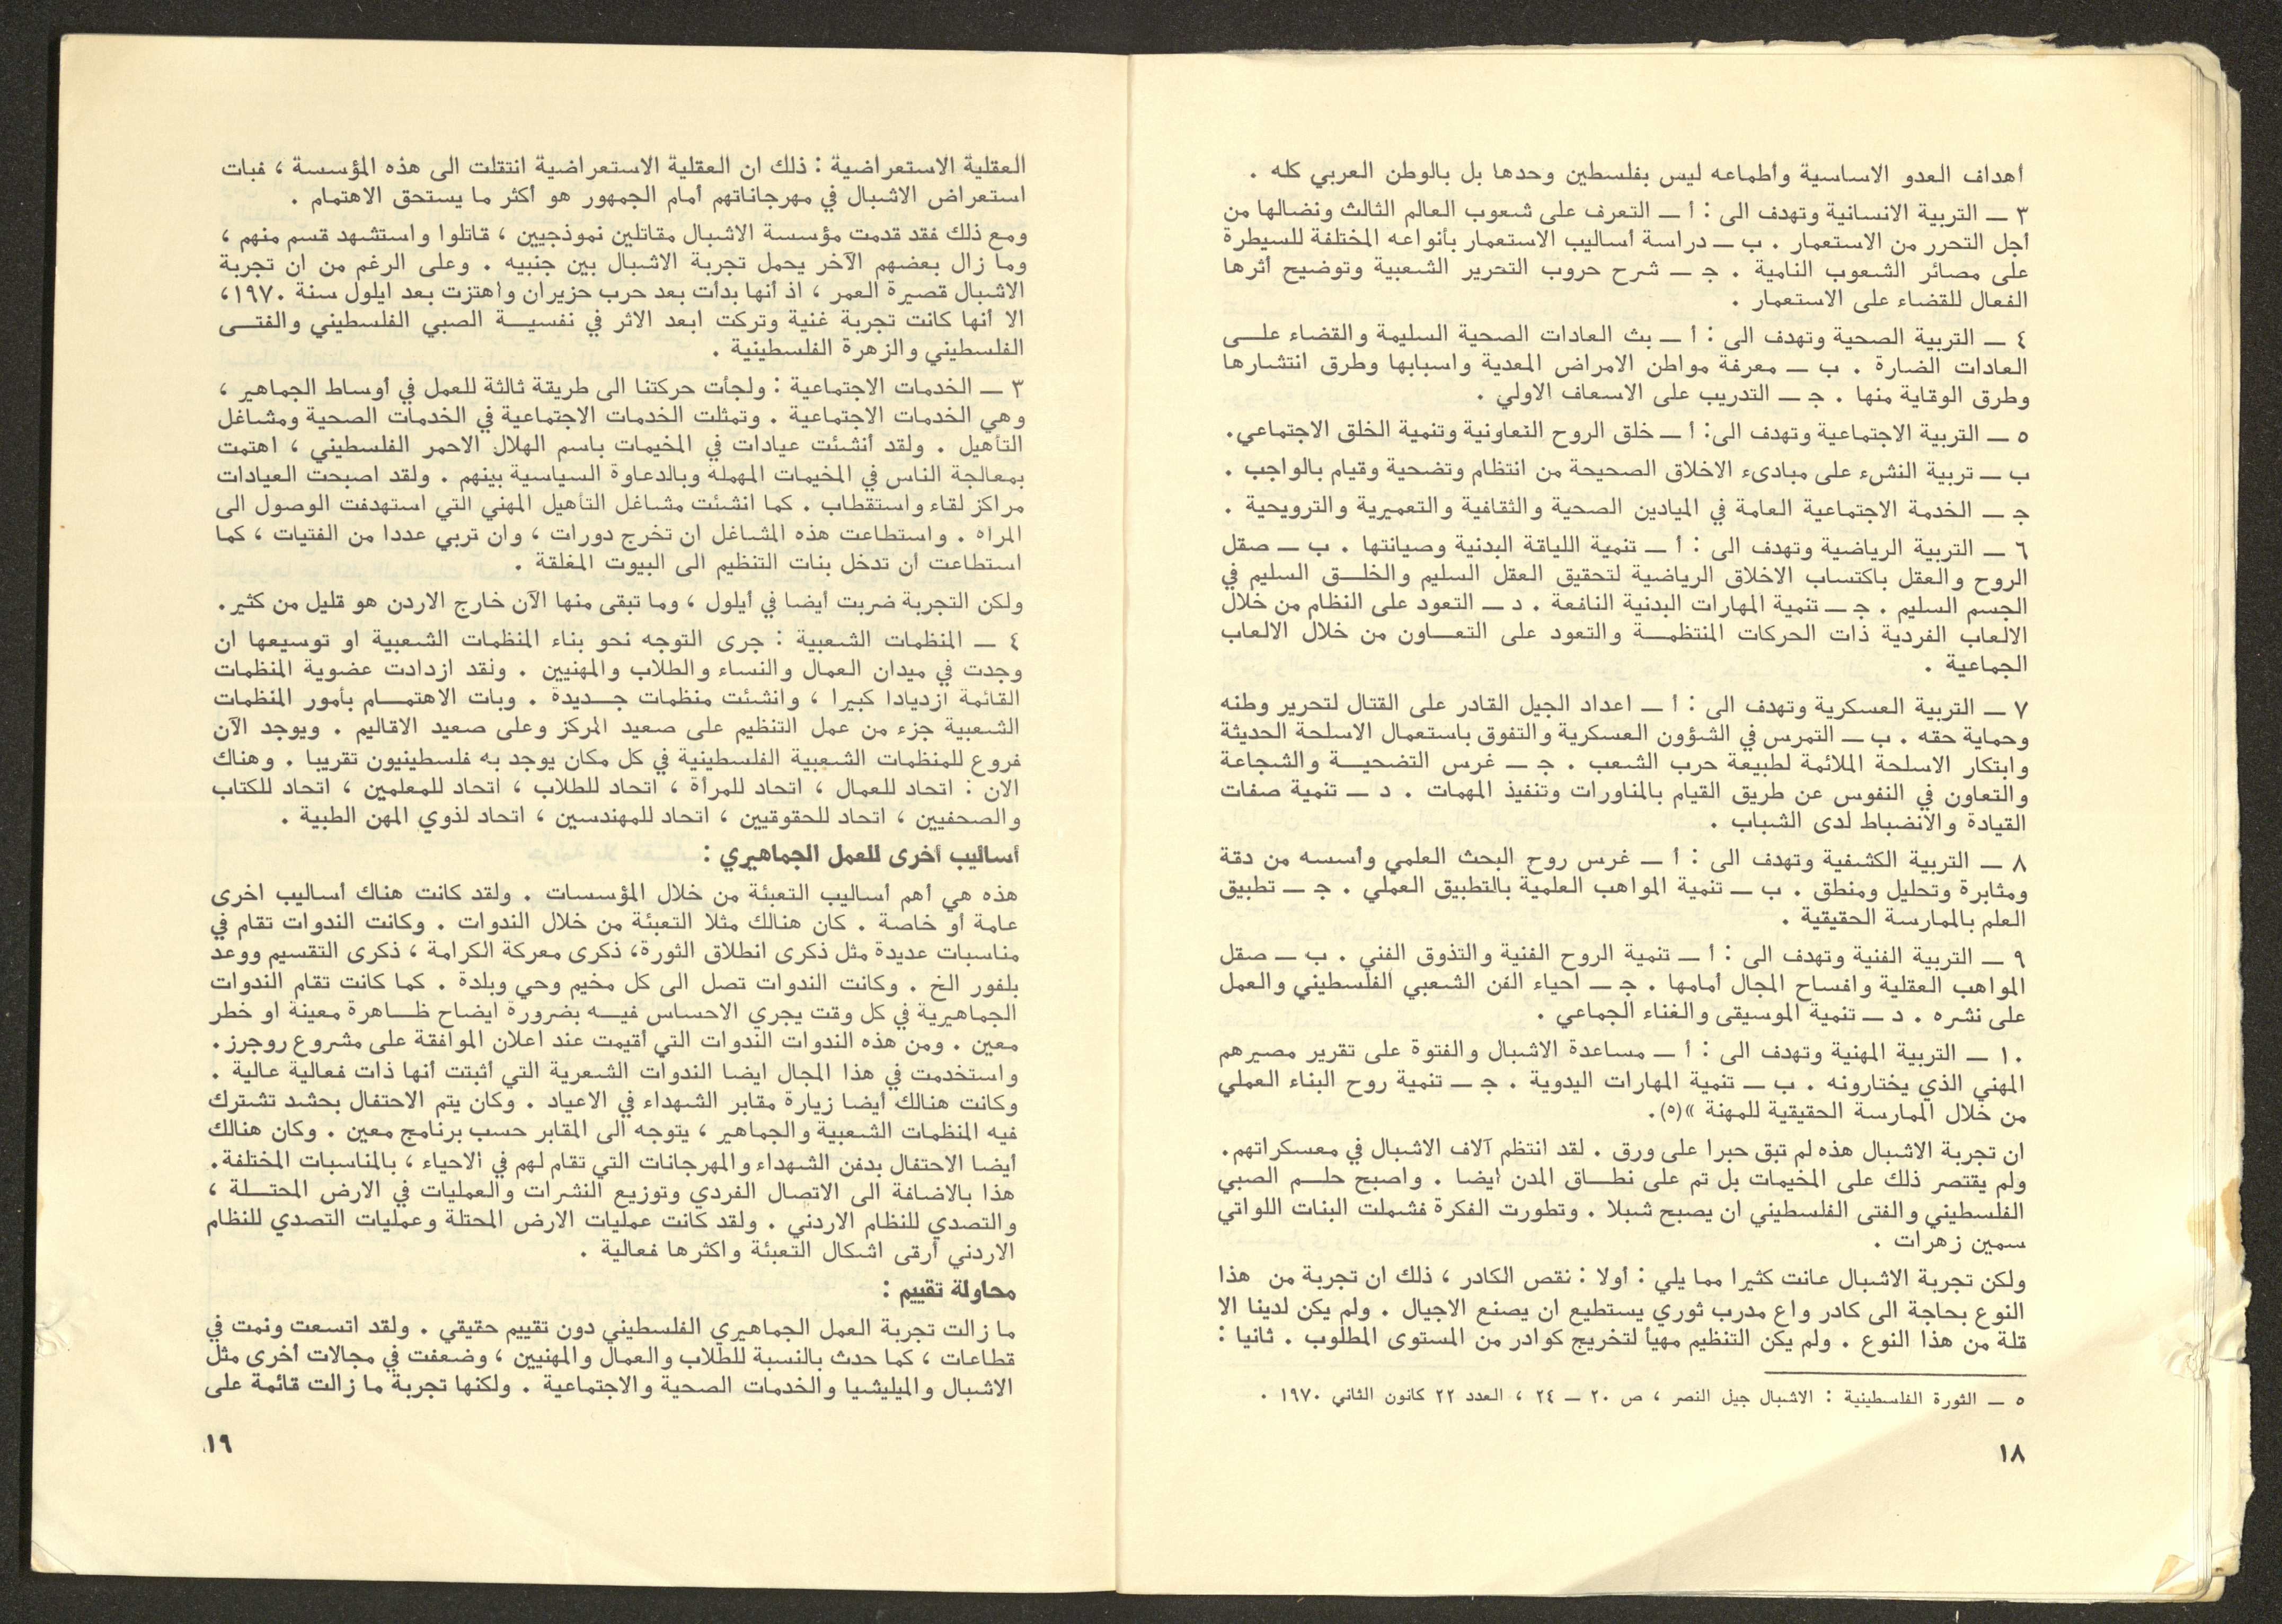 أهداف العدو الاساسية وأطماعه ليس بفلسطين وحدها بل بالوطن العربي كله .
٣ ــ التربية الانسانية وتهدف الى : أ ــ التعرف على شعوب العالم الثالث ونضالها من
أجل التحرر من الاستعمار . ب ــ دراسة أساليب الاستعمار بأنواعه المختلفة للسيطرة
على مصائر الشعوب النامية . جـ ــ شرح حروب التحرير الشعبية وتوضيح أثرها
الفعال للقضاء على الاستعمار .
٤ ــ التربية الصحية وتهدف الى : أ ــ بث العادات الصحية السليمة والقضاء علــى
العادات الضارة . ب ــ معرفة مواطن الامراض المعدية واسبابها وطرق انتشارها
وطرق الوقاية منها . جـ ــ التدريب على الاسعاف الاولي .
٥ ــ التربية الاجتماعية وتهدف الى: أ ــ خلق الروح التعاونية وتنمية الخلق الاجتماعي.
ب ــ تربية النشء على مبادىء الاخلاق الصحيحة من انتظام وتضحية وقيام بالواجب .
جـ ــ الخدمة الاجتماعية العامة في الميادين الصحية والثقافية والتعميرية والترويحية .
٦ ــ التربية الرياضية وتهدف الى : أ ــ تنمية اللياقة البدنية وصيانتها . ب ــ صقل
الروح والعقل باكتساب الاخلاق الرياضية لتحقيق العقل السليم والخلــق السليم في
الجسم السليم . جـ ــ تنمية المهارات البدنية النافعة . د ــ التعود على النظام من خلال
الالعاب الفردية ذات الحركات المنتظمــة والتعود على التعــاون من خلال الالعاب
الجماعية .
٧ ــ التربية العسكرية وتهدف الى : أ ــ اعداد الجيل القادر على القتال لتحرير وطنه
وحماية حقه . ب ــ التمرس في الشؤون العسكرية والتفوق باستعمال الاسلحة الحديثة
وابتكار الاسلحة الملائمة لطبيعة حرب الشعب . جـ ــ غرس التضحيــة والشجاعة
والتعاون في النفوس عن طريق القيام بالمناورات وتنفيذ المهمات . د ــ تنمية صفات
القيادة والانضباط لدى الشباب .
٨ ــ التربية الكشفية وتهدف الى : أ ــ غرس روح البحث العلمي وأسسه من دقة
ومثابرة وتحليل ومنطق . ب ــ تنمية المواهب العلمية بالتطبيق العملي . جـ ــ تطبيق
العلم بالممارسة الحقيقية .
٩ ــ التربية الفنية وتهدف الى : أ ــ تنمية الروح الفنية والتذوق الفني . ب ــ صقل
المواهب العقلية وافساح المجال أمامها . جـ ــ احياء الفن الشعبي الفلسطيني والعمل
على نشره . د ــ تنمية الموسيقى والغناء الجماعي .
١٠ ــ التربية المهنية وتهدف الى : أ ــ مساعدة الاشبال والفتوة على تقرير مصيرهم
المهني الذي يختارونه . ب ــ تنمية المهارات اليدوية . جـ ــ تنمية روح البناء العملي
من خلال الممارسة الحقيقية للمهنة »(٥).
ان تجربة الاشبال هذه لم تبق حبرا على ورق . لقد انتظم آلاف الاشبال في معسكراتهم.
ولم يقتصر ذلك على المخيمات بل تم على نطــاق المدن أيضا . واصبح حلــم الصبي
الفلسطيني والفتى الفلسطيني ان يصبح شبلا . وتطورت الفكرة فشملت البنات اللواتي
سمين زهرات .
ولكن تجربة الاشبال عانت كثيرا مما يلي : أولا : نقص الكادر ، ذلك ان تجربة من هذا
النوع بحاجة الى كادر واع مدرب ثوري يستطيع ان يصنع الاجيال . ولم يكن لدينا الا
قلة من هذا النوع . ولم يكن التنظيم مهيأ لتخريج كوادر من المستوى المطلوب . ثانيا :
٥ ــ الثورة الفلسطينية : الاشبال جيل النصر ، ص ٢٠ ــ ٢٤ ، العدد ٢٢ كانون الثاني ١٩٧٠ .
١٨
العقلية الاستعراضية : ذلك ان العقلية الاستعراضية انتقلت الى هذه المؤسسة ، فبات
استعراض الاشبال في مهرجاناتهم أمام الجمهور هو أكثر ما يستحق الاهتمام .
ومع ذلك فقد قدمت مؤسسة الاشبال مقاتلين نموذجيين ، قاتلوا واستشهد قسم منهم ،
وما زال بعضهم الآخر يحمل تجربة الاشبال بين جنبيه . وعلى الرغم من ان تجربة
الاشبال قصيرة العمر ، اذ أنها بدأت بعد حرب حزيران واهتزت بعد ايلول سنة ١٩٧٠،
الا أنها كانت تجربة غنية وتركت ابعد الاثر في نفسيــة الصبي الفلسطيني والفتــى
الفلسطيني والزهرة الفلسطينية .
٣ ــ الخدمات الاجتماعية : ولجأت حركتنا الى طريقة ثالثة للعمل في أوساط الجماهير ،
وهي الخدمات الاجتماعية . وتمثلت الخدمات الاجتماعية في الخدمات الصحية ومشاغل
التأهيل . ولقد أنشئت عيادات في المخيمات باسم الهلال الاحمر الفلسطيني ، اهتمت
بمعالجة الناس في المخيمات المهملة وبالدعاوة السياسية بينهم . ولقد اصبحت العيادات
مراكز لقاء واستقطاب . كما انشئت مشاغل التأهيل المهني التي استهدفت الوصول الى
المراه . واستطاعت هذه المشاغل ان تخرج دورات ، وان تربي عددا من الفتيات ، كما
استطاعت أن تدخل بنات التنظيم الى البيوت المغلقة .
ولكن التجربة ضربت أيضا في أيلول ، وما تبقى منها الآن خارج الاردن هو قليل من كثير.
٤ ــ المنظمات الشعبية : جرى التوجه نحو بناء المنظمات الشعبية او توسيعها ان
وجدت في ميدان العمال والنساء والطلاب والمهنيين . ولقد ازدادت عضوية المنظمات
القائمة ازديادا كبيرا ، وانشئت منظمات جــديدة . وبات الاهتمــام بأمور المنظمات
الشعبية جزء من عمل التنظيم على صعيد المركز وعلى صعيد الاقاليم . ويوجد الآن
فروع للمنظمات الشعبية الفلسطينية في كل مكان يوجد به فلسطينيون تقريبا . وهناك
الان : اتحاد للعمال ، اتحاد للمرأة ، اتحاد للطلاب ، اتحاد للمعلمين ، اتحاد للكتاب
والصحفيين ، اتحاد للحقوقيين ، اتحاد للمهندسين ، اتحاد لذوي المهن الطبية .
أساليب أخرى للعمل الجماهيري :
هذه هي أهم أساليب التعبئة من خلال المؤسسات . ولقد كانت هناك أساليب اخرى
عامة أو خاصة . كان هنالك مثلا التعبئة من خلال الندوات . وكانت الندوات تقام في
مناسبات عديدة مثل ذكرى انطلاق الثورة، ذكرى معركة الكرامة ، ذكرى التقسيم ووعد
بلفور الخ . وكانت الندوات تصل الى كل مخيم وحي وبلدة . كما كانت تقام الندوات
الجماهيرية في كل وقت يجري الاحساس فيــه بضرورة ايضاح ظــاهرة معينة او خطر
معين . ومن هذه الندوات الندوات التي أقيمت عند اعلان الموافقة على مشروع روجرز.
واستخدمت في هذا المجال ايضا الندوات الشعرية التي أثبتت أنها ذات فعالية عالية .
وكانت هنالك أيضا زيارة مقابر الشهداء في الاعياد . وكان يتم الاحتفال بحشد تشترك
فيه المنظمات الشعبية والجماهير ، يتوجه الى المقابر حسب برنامج معين . وكان هنالك
أيضا الاحتفال بدفن الشهداء والمهرجانات التي تقام لهم في الاحياء ، بالمناسبات المختلفة.
هذا بالاضافة الى الاتصال الفردي وتوزيع النشرات والعمليات في الارض المحتــلة ،
والتصدي للنظام الاردني . ولقد كانت عمليات الارض المحتلة وعمليات التصدي للنظام
الاردني أرقى اشكال التعبئة واكثرها فعالية .
محاولة تقييم :
ما زالت تجربة العمل الجماهيري الفلسطيني دون تقييم حقيقي . ولقد اتسعت ونمت في
قطاعات ، كما حدث بالنسبة للطلاب والعمال والمهنيين ، وضعفت في مجالات أخرى مثل
الاشبال والميليشيا والخدمات الصحية والاجتماعية . ولكنها تجربة ما زالت قائمة على
١٩